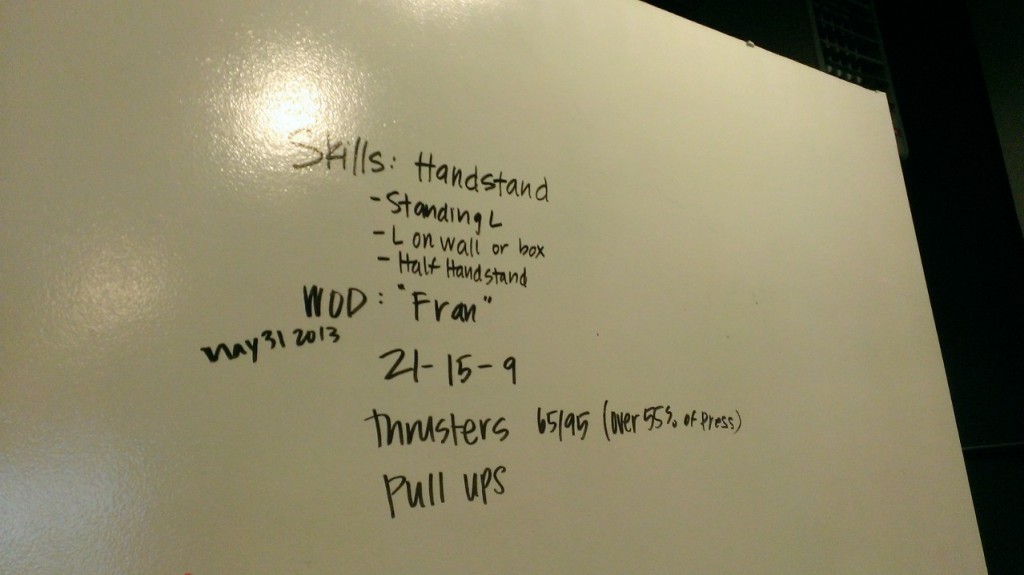 Skills: Handstand
- Standing L
- L on wall or box
- Half Handstand
WOD: "Fran"
may 31 2013
21-15-9
Thrusters 65/95 (over 55% of Press)
Pull ups